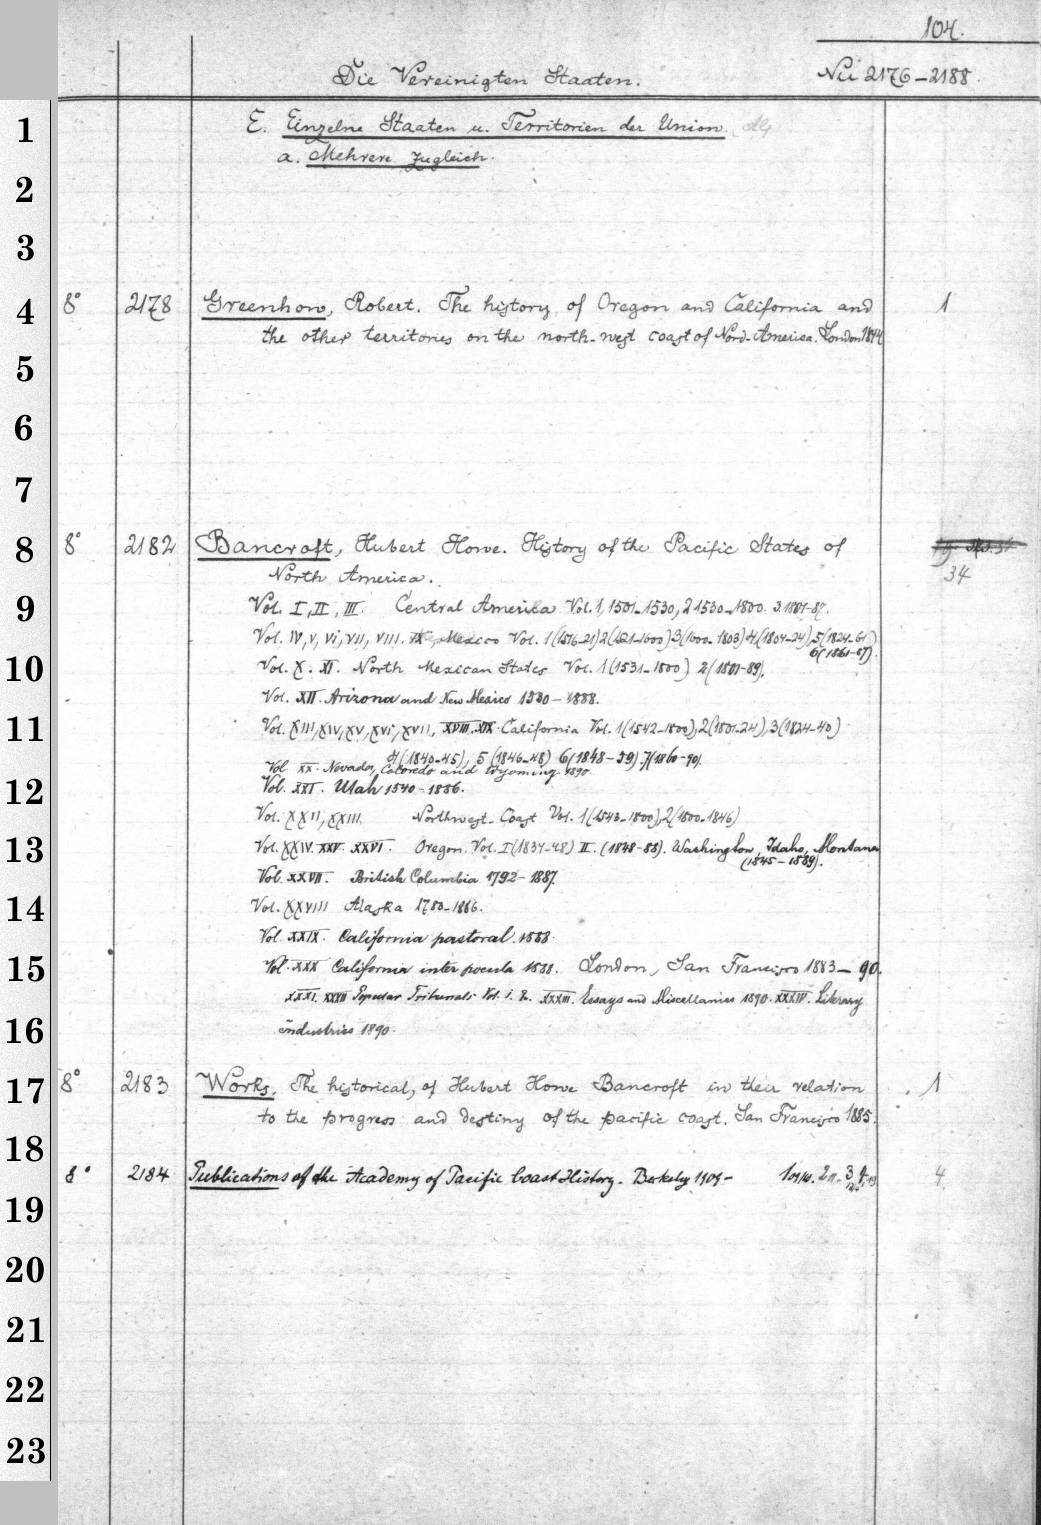 104.
Die Vereinigten Staaten.
Nii 2176-2188.
1
E. Einzelne Staaten u. Territorien der Union.
a. Mehrere zugleich.
2
3
4
8° 2178 Greenhow, Robert. The history of Oregon and California and 1
the other territories on the north-west coast of Nord-America. London 1844
5
6
7
8
8° 2182 Bancroft, Hubert Howe. History of the Pacific States of
North America. 34
9
Vol. I, II, III. Central America Vol. 1, 1501-1530, 2 1530-1800. 3. 1801-87.
Vol. IV, V, VI, VII, VIII. IX. Mexico Vol. 1 (1516-21) 2 (1521-1600) 3 (1600-1803) 4 (1804-24), 5 (1824-61)
6 (1861-87).
10
Vol. X. XI. North Mexican States Vol. 1 (1531-1800) 2 (1801-89).
Vol. XII. Arizona and New Mexico 1530-1888.
11
Vol. XIII, XIV, XV, XVI, XVII, XVIII. XIX. California Vol. 1 (1542-1800), 2 (1801-24), 3 (1824-40)
4 (1840-45), 5 (1846-48) 6 (1848-59). 7 (1860-90).
Vol. XX. Nevada, Colorado and Wyoming. 1890.
12
Vol. XXI. Utah 1540-1886.
Vol. XXII, XXIII. Northwest-Coast Vol. 1 (1543-1800), 2 (1800-1846)
13
Vol. XXIV. XXV. XXVI. Oregon. Vol. I (1834-48) II. (1848-88). Washington, Idaho, Montana
(1845-1889).
Vol. XXVII. British Columbia 1792-1887.
14
Vol. XXVIII Alaska 1730-1886.
Vol. XXIX. California pastoral. 1888.
15
Vol. XXX California inter pocula 1888. London, San Francisco 1883-90.
XXXI. XXXII Popular Tribunals Vol. 1. 2. XXXIII. Essays and Miscellanies 1890. XXXIV. Literary
16
industries 1890.
17
8° 2183 Works, The historical, of Hubert Howe Bancroft in their relation 1
to the progress and destiny of the pacific coast. San Francisco 1885.
18
8° 2184 Publications of the Academy of Pacific Coast History. Berkeley 1909- 4
19
20
21
22
23